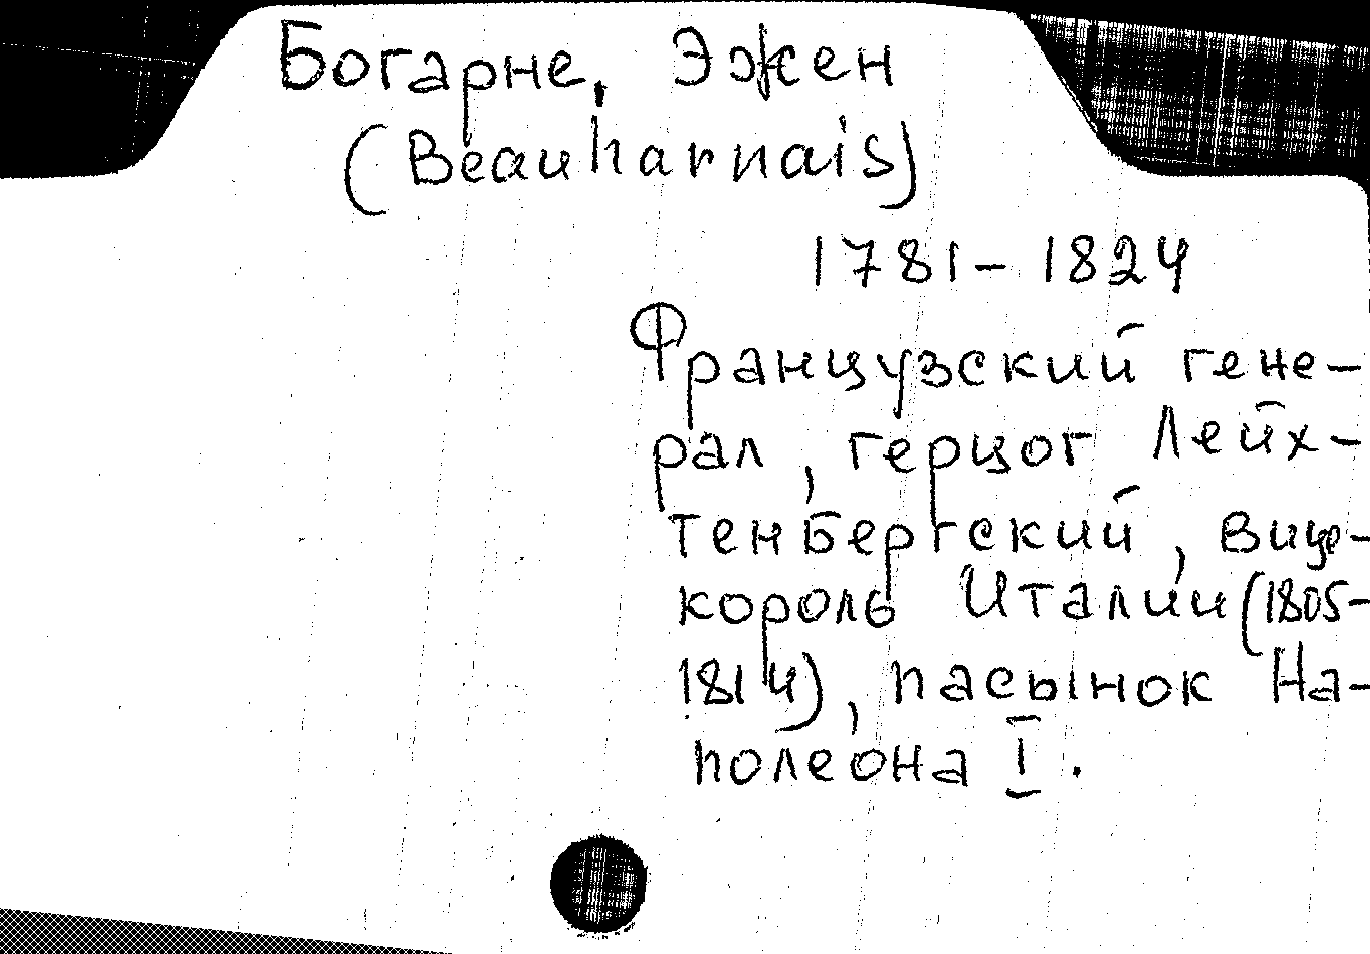 Богарне, Эжен
(Beauharnais)
1781-1824
Французский гене-
рал, герцог Лейх-
тенбергский, вице-
король Италии (1805-
1814), пасынок На-
полеона I.